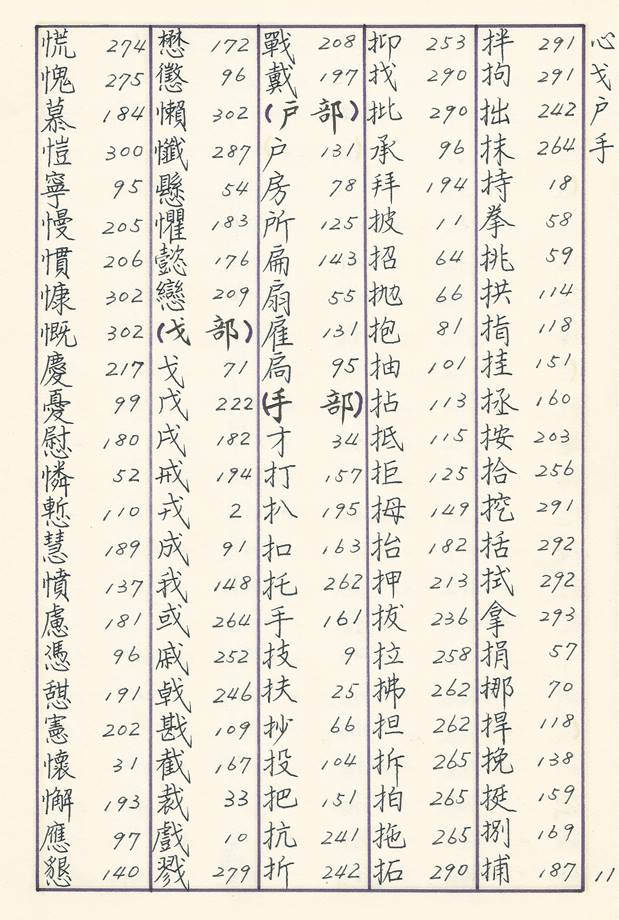 心
戈
戶
手
拌 291
拘 291
拙 242
抹 264
持 18
拳 58
挑 59
拱 114
指 118
挂 151
拯 160
按 203
拾 256
挖 291
括 292
拭 292
拿 293
捐 57
挪 70
捍 118
挽 138
挺 159
捌 169
捕 187
抑 253
找 290
批 290
承 96
拜 194
披 11
招 64
拋 66
抱 81
抽 101
拈 113
抵 115
拒 125
拇 149
抬 182
押 213
拔 236
拉 258
拂 262
担 262
拆 265
拍 265
拖 265
拓 290
戰 208
戴 197
(戶部)
戶 131
房 78
所 125
扁 143
扇 55
雇 131
扃 95
(手部)
才 34
打 157
扒 195
扣 163
托 262
手 161
技 9
扶 25
抄 66
投 104
把 151
抗 241
折 242
懋 172
懲 96
懶 302
懺 287
懸 54
懼 183
懿 176
戀 209
(戈部)
戈 71
戊 222
戌 182
戒 194
戎 2
成 91
我 148
或 264
戚 252
戟 246
戡 109
截 167
裁 33
戲 10
戮 279
慌 274
愧 275
慕 184
愷 300
寧 95
慢 205
慣 206
慷 302
慨 302
慶 217
憂 99
慰 180
憐 52
慙 110
慧 189
憤 137
慮 181
憑 96
憇 191
憲 202
懷 31
懈 193
應 97
懇 140
11